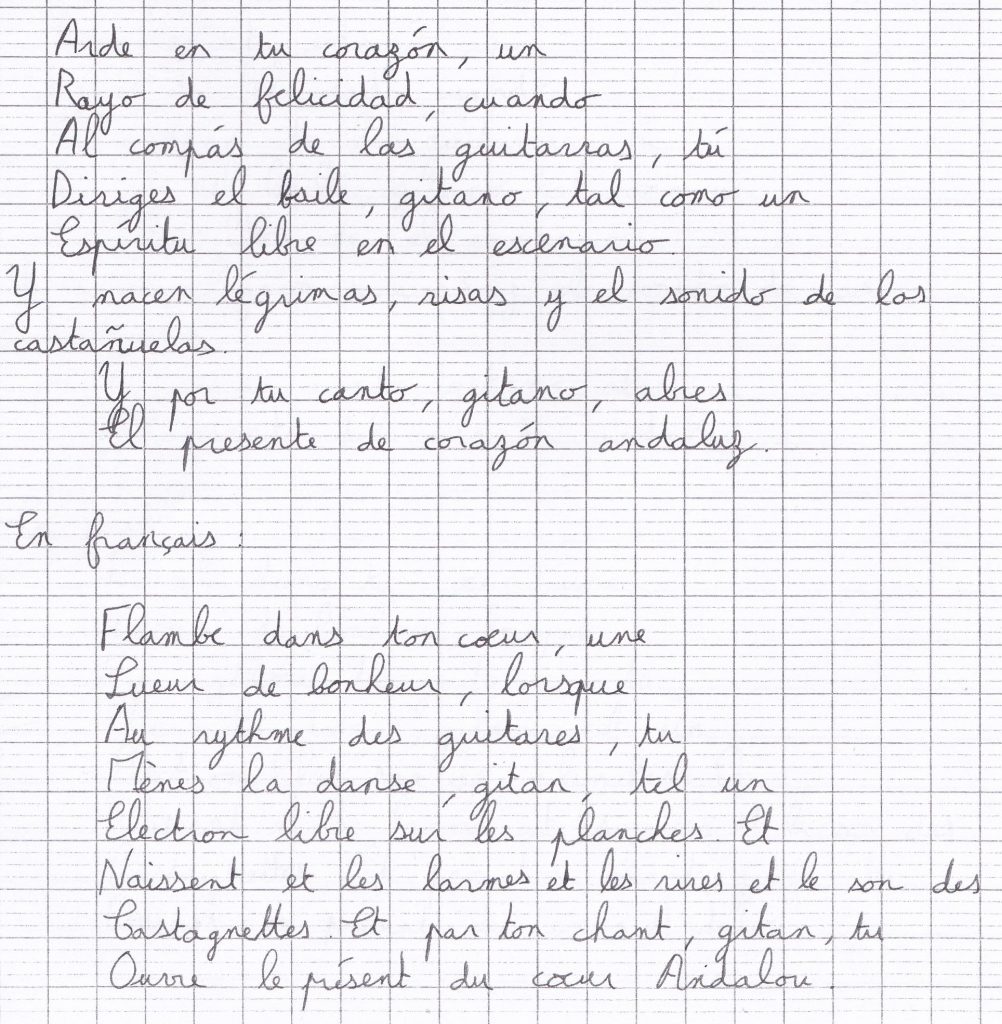 Arde en tu corazón, un
Rayo de felicidad, cuando
Al compás de las guitarras, tú
Diriges el baile, gitano, tal como un
Espíritu libre en el escenario.
Y nacen légrimas, risas y el sonido de las
castañuelas.
Y por tu canto, gitano, abres
El presente de corazón andaluz.
En français :
Flambe dans ton cœur, une
Lueur de bonheur, lorsque
Au rythme des guitares, tu
Mènes la danse, gitan, tel un
Electron libre sur les planches. Et
Naissent et les larmes et les rires et le son des
Castagnettes. Et par ton chant, gitan, tu
Ouvre le présent du cœur Andalou.